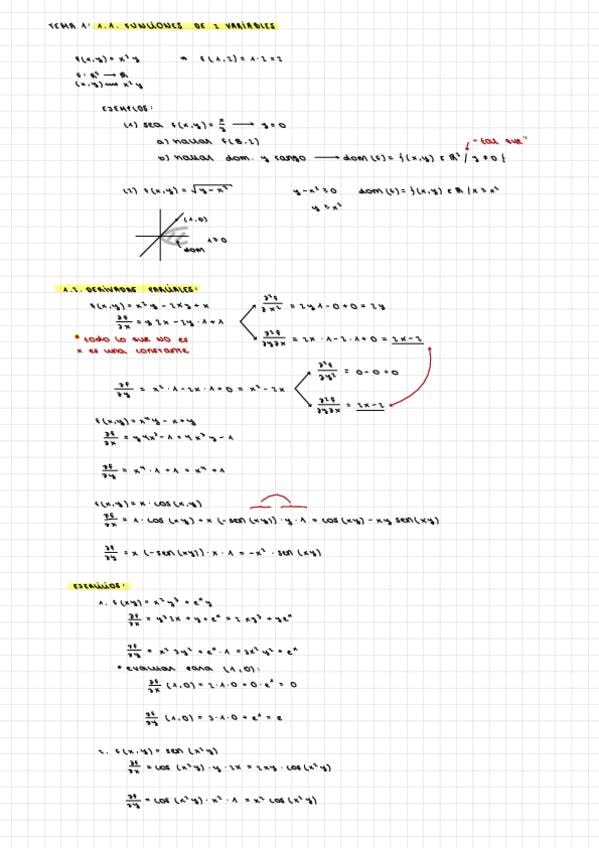 TEMA 1: 1.1. FUNCIONES DE 2 VARIABLES
f(x,y) = x²y ⇒ f(1,2) = 1·2 = 2
f: R² → R
(x,y) ⟿ x²y
EJEMPLOS:
(1) sea f(x,y) = x/y → y=0
"tal que"
a) hallar f(8,2)
b) hallar dom. y rango → dom(f) = {(x,y) ∈ R² / y ≠ 0}
(2) f(x,y) = √(y-x²) y-x² ≥ 0 dom(f) = {(x,y) ∈ R / x ≥ x²
y ≥ x²
(1,0)
1≥0
dom
1.2. DERIVADAS PARCIALES:
f(x,y) = x²y - 2xy + x
∂²f/∂x² = 2y·1-0+0 = 2y
∂f/∂x = y 2x - 2y·1 + 1
* todo lo que no es
x es una constante
∂²f/∂y∂x = 2x·1-2·1+0 = 2x-2
∂²f/∂y² = 0-0=0
∂f/∂y = x²·1-2x·1+0 = x²-2x
∂²f/∂y∂x = 2x-2
f(x,y) = x⁴y - x+y
∂f/∂x = y4x³-1 = 4x³y-1
∂f/∂y = x⁴·1+1 = x⁴+1
f(x,y) = x·cos(x,y)
∂f/∂x = 1·cos(xy)+x(-sen(xy))·y·1 = cos(xy)-xy sen(xy)
∂f/∂y = x(-sen(xy))·x·1 = -x²·sen(xy)
EJERCICIOS:
1. f(xy) = x²y³ + eˣy
∂f/∂x = y³2x + y+eˣ = 2xy³ + yeˣ
∂f/∂y = x²3y² + eˣ·1 = 3x²y² + eˣ
* evaluar para (1,0):
∂f/∂x (1,0) = 2·1·0+0·e¹ = 0
∂f/∂y (1,0) = 3·1·0+e¹ = e
2. f(x,y) = sen(x²y)
∂f/∂x = cos(x²y)·y·2x = 2xy·cos(x²y)
∂f/∂y = cos(x²y)·x²·1 = x² cos(x²y)